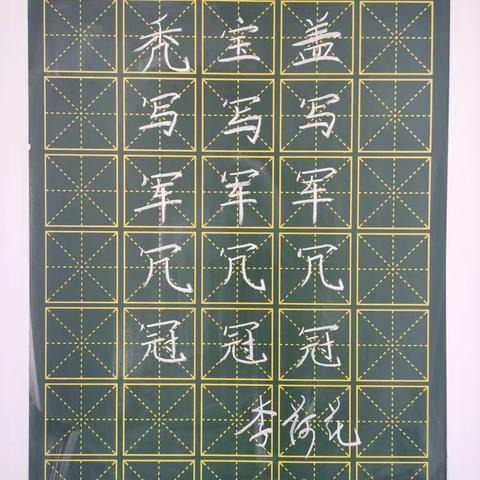 秃宝盖
写写写
军军军
冗冗冗
冠冠冠
李荷花